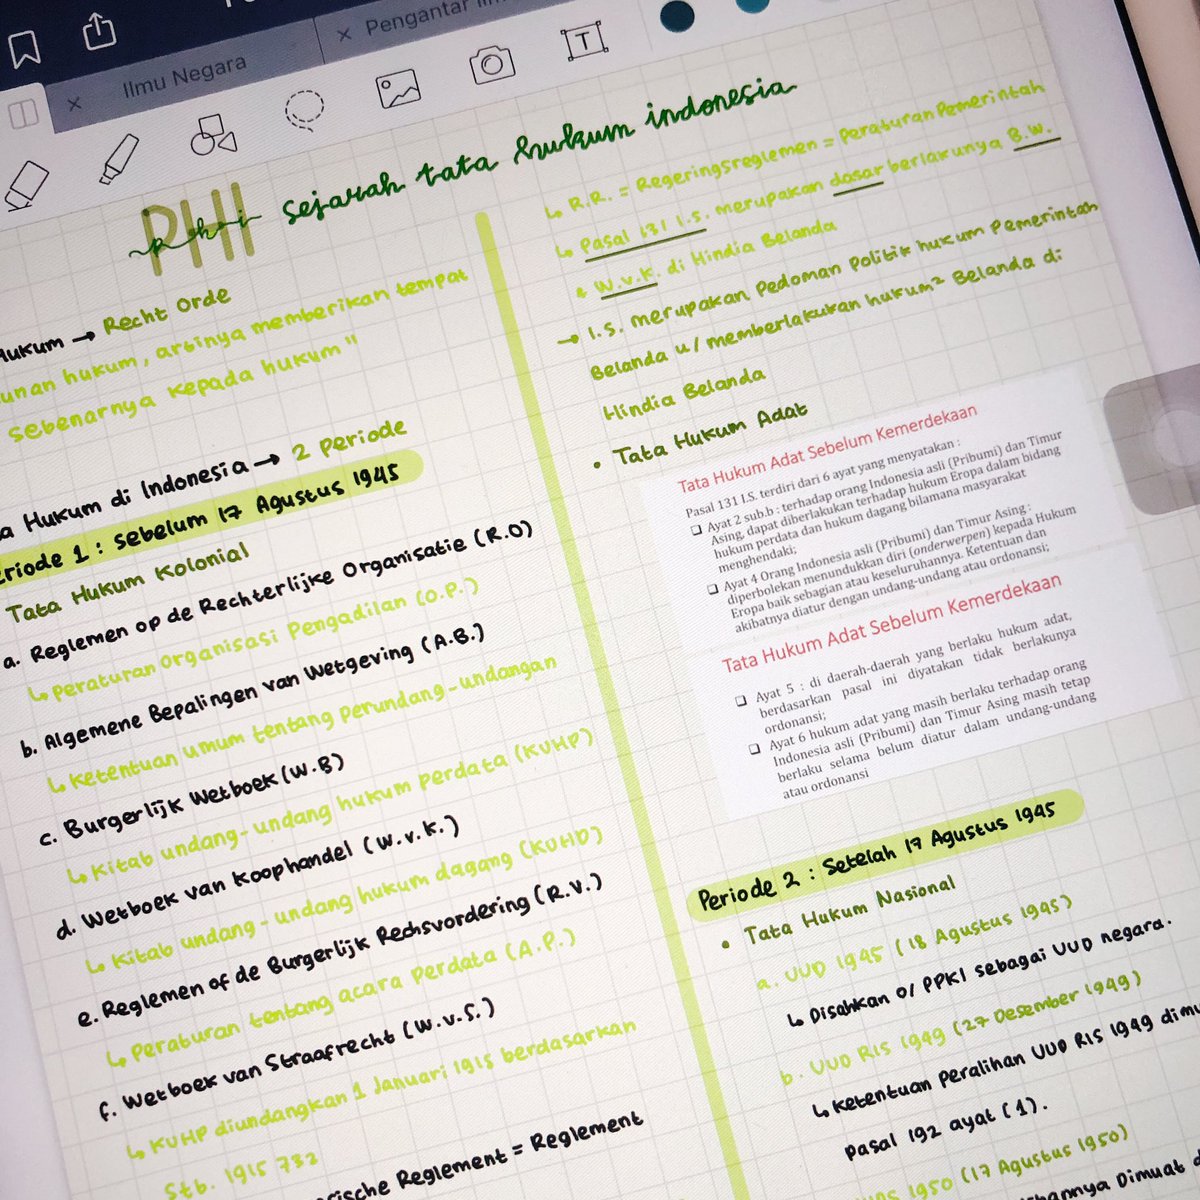 Ilmu Negara
Pengantar Ilm
T
PHI
phi sejarah tata hukum indonesia
Hukum → Recht Orde
unan hukum, artinya memberikan tempat
sebenarnya kepada hukum"
a Hukum di Indonesia → 2 Periode
eriode 1 : sebelum 17 Agustus 1945
Tata Hukum Kolonial
a. Reglemen op de Rechterlijke Organisatie (R.O)
↳ Peraturan Organisasi Pengadilan (O.P.)
b. Algemene Bepalingen van Wetgeving (A.B.)
↳ Ketentuan umum tentang perundang-undangan
c. Burgerlijk Wetboek (W.B)
↳ Kitab undang-undang hukum perdata (KUHP)
d. Wetboek van Koophandel (W.v.K.)
↳ Kitab undang-undang hukum dagang (KUHD)
e. Reglemen of de Burgerlijk Rechsvordering (R.V.)
↳ Peraturan tentang acara perdata (A.P.)
f. Wetboek van Straafrecht (W.v.S.)
↳ KUHP diundangkan 1 Januari 1915 berdasarkan
Stb. 1915 732
rische Reglement = Reglement
↳ R.R. = Regeringsreglemen = Peraturan Pemerintah
↳ Pasal 131 I.S. merupakan dasar berlakunya B.W.
& W.v.K. di Hindia Belanda
→ I.S. merupakan Pedoman Politik hukum Pemerintah
Belanda u/ memberlakukan hukum² Belanda di
Hindia Belanda
• Tata Hukum Adat
Tata Hukum Adat Sebelum Kemerdekaan
Pasal 131 I.S. terdiri dari 6 ayat yang menyatakan :
❑ Ayat 2 sub.b : terhadap orang Indonesia asli (Pribumi) dan Timur
Asing, dapat diberlakukan terhadap hukum Eropa dalam bidang
hukum perdata dan hukum dagang bilamana masyarakat
menghendaki;
❑ Ayat 4 Orang Indonesia asli (Pribumi) dan Timur Asing :
diperbolekan menundukkan diri (onderwerpen) kepada Hukum
Eropa baik sebagian atau keseluruhannya. Ketentuan dan
akibatnya diatur dengan undang-undang atau ordonansi;
Tata Hukum Adat Sebelum Kemerdekaan
❑ Ayat 5 : di daerah-daerah yang berlaku hukum adat,
berdasarkan pasal ini diyatakan tidak berlakunya
ordonansi;
❑ Ayat 6 hukum adat yang masih berlaku terhadap orang
Indonesia asli (Pribumi) dan Timur Asing masih tetap
berlaku selama belum diatur dalam undang-undang
atau ordonansi
Periode 2 : Setelah 17 Agustus 1945
• Tata Hukum Nasional
a. UUD 1945 (18 Agustus 1945)
↳ Disahkan o/ PPKI sebagai UUD negara.
b. UUD RIS 1949 (27 Desember 1949)
↳ Ketentuan Peralihan UUD RIS 1949 dimu
Pasal 192 ayat (1).
1950 (17 Agustus 1950)
Dimuat d